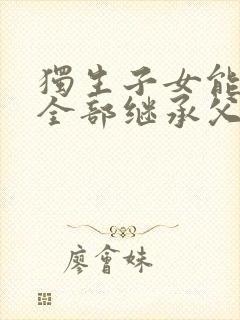 獨生子女能
全部继承父
廖會妹